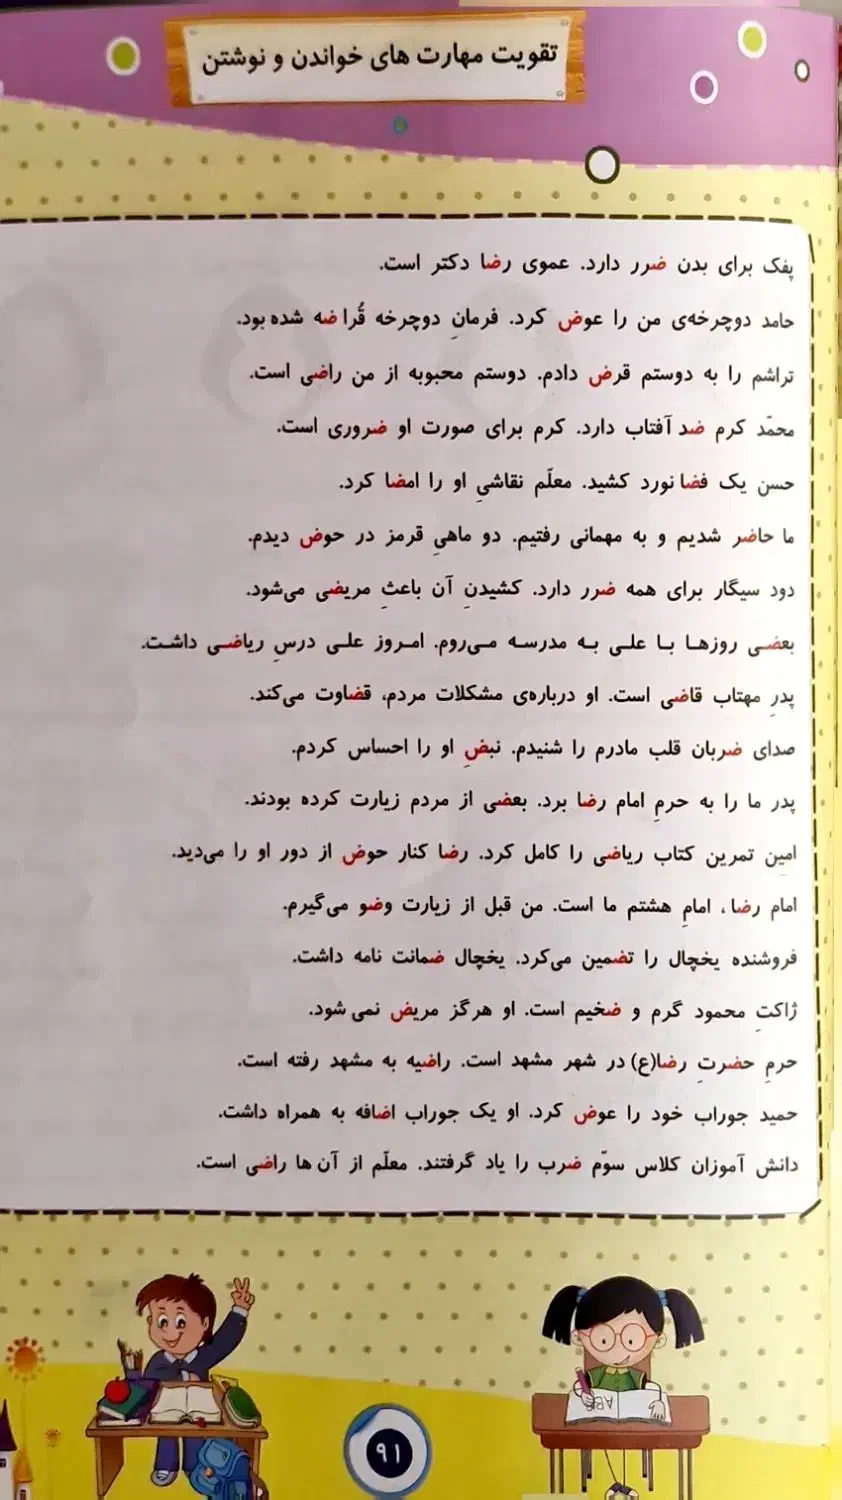 تقویت مهارت های خواندن و نوشتن
پفک برای بدن ضرر دارد. عموی رضا دکتر است.
حامد دوچرخه‌ی من را عوض کرد. فرمانِ دوچرخه قُراضه شده بود.
تراشم را به دوستم قرض دادم. دوستم محبوبه از من راضی است.
محمّد کرم ضد آفتاب دارد. کرم برای صورت او ضروری است.
حسن یک فضانورد کشید. معلّم نقاشیِ او را امضا کرد.
ما حاضر شدیم و به مهمانی رفتیم. دو ماهیِ قرمز در حوض دیدم.
دود سیگار برای همه ضرر دارد. کشیدنِ آن باعثِ مریضی می‌شود.
بعضی روزها با علی به مدرسه می‌روم. امروز علی درسِ ریاضی داشت.
پدرِ مهتاب قاضی است. او درباره‌ی مشکلات مردم، قضاوت می‌کند.
صدای ضربان قلب مادرم را شنیدم. نبضِ او را احساس کردم.
پدر ما را به حرمِ امام رضا برد. بعضی از مردم زیارت کرده بودند.
امین تمرین کتاب ریاضی را کامل کرد. رضا کنار حوض از دور او را می‌دید.
امام رضا، امامِ هشتم ما است. من قبل از زیارت وضو می‌گیرم.
فروشنده یخچال را تضمین می‌کرد. یخچال ضمانت نامه داشت.
ژاکتِ محمود گرم و ضخیم است. او هرگز مریض نمی شود.
حرمِ حضرتِ رضا(ع) در شهر مشهد است. راضیه به مشهد رفته است.
حمید جوراب خود را عوض کرد. او یک جوراب اضافه به همراه داشت.
دانش آموزان کلاس سوّم ضرب را یاد گرفتند. معلّم از آن ها راضی است.
ABC
۹۱